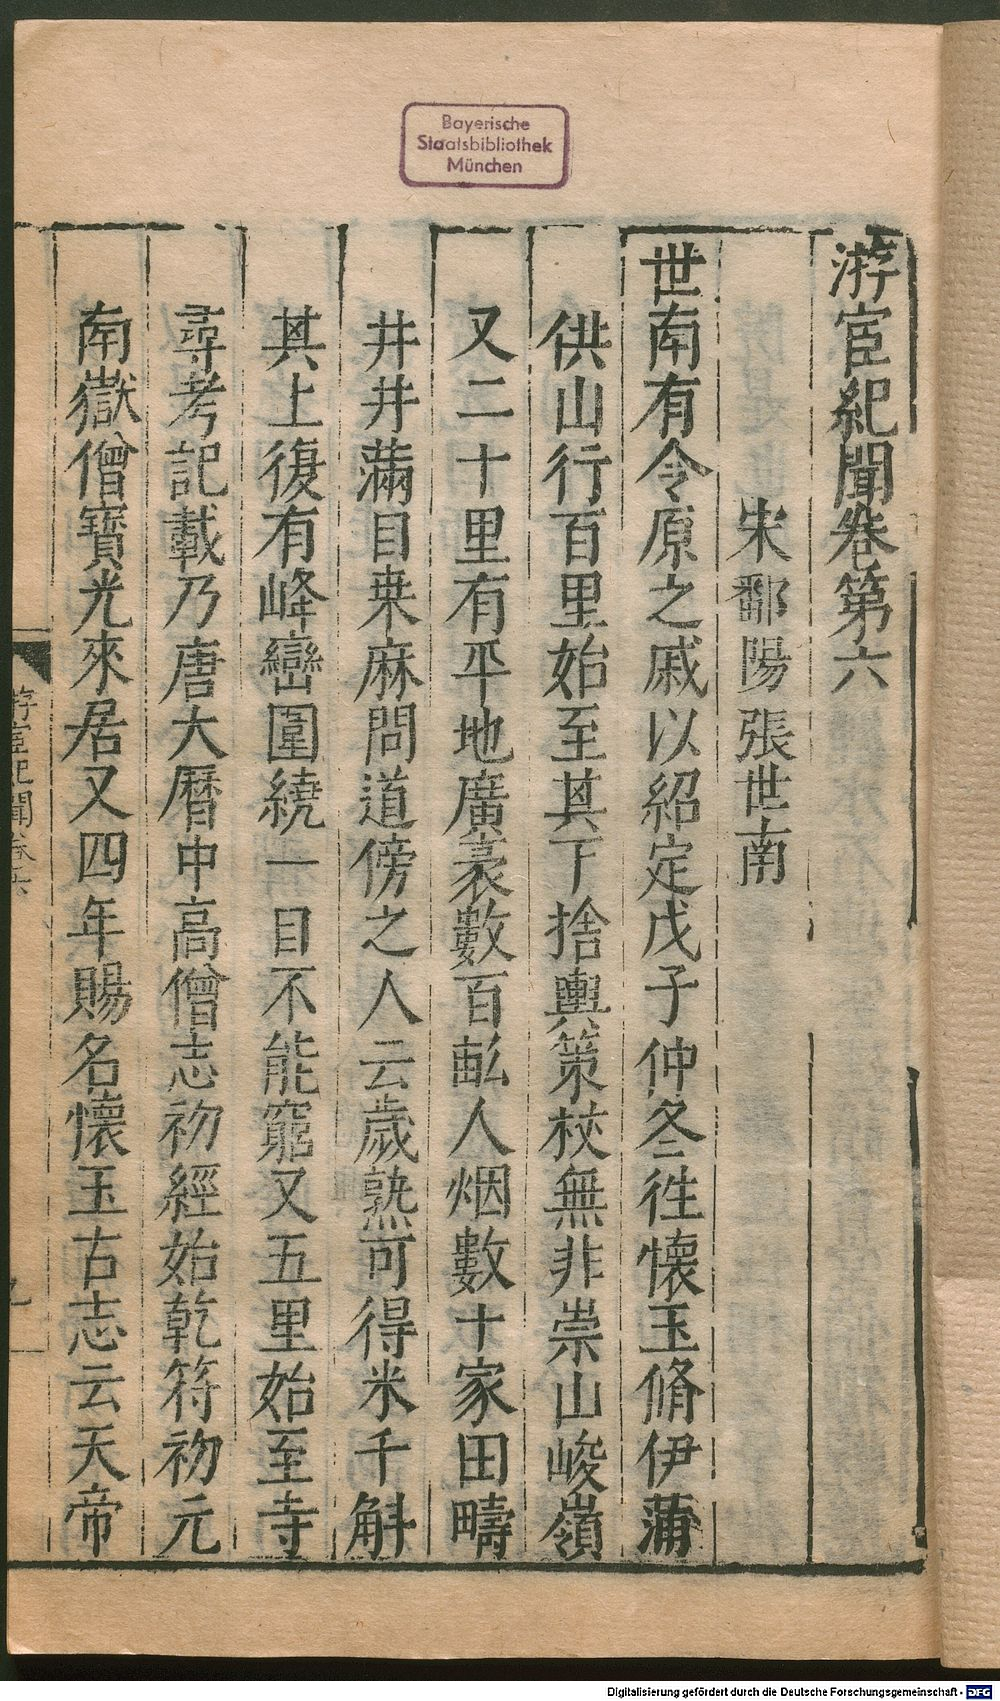 Bayerische
Staatsbibliothek
München
游宦紀聞卷第六
宋鄱陽張世南
世南有令原之戚以紹定戊子仲冬徃懷玉脩伊蒲
供山行百里始至其下捨輿策杖無非崇山峻嶺
又二十里有平地廣袤數百畝人烟數十家田疇
井井滿目桒麻問道傍之人云歲熟可得米千斛
其上復有峰巒圍繞一目不能窮又五里始至寺
尋考記載乃唐大曆中高僧志初經始乾符初元
南嶽僧寶光來居又四年賜名懷玉古志云天帝
游宦紀聞卷六
Digitalisierung gefördert durch die Deutsche Forschungsgemeinschaft - DFG